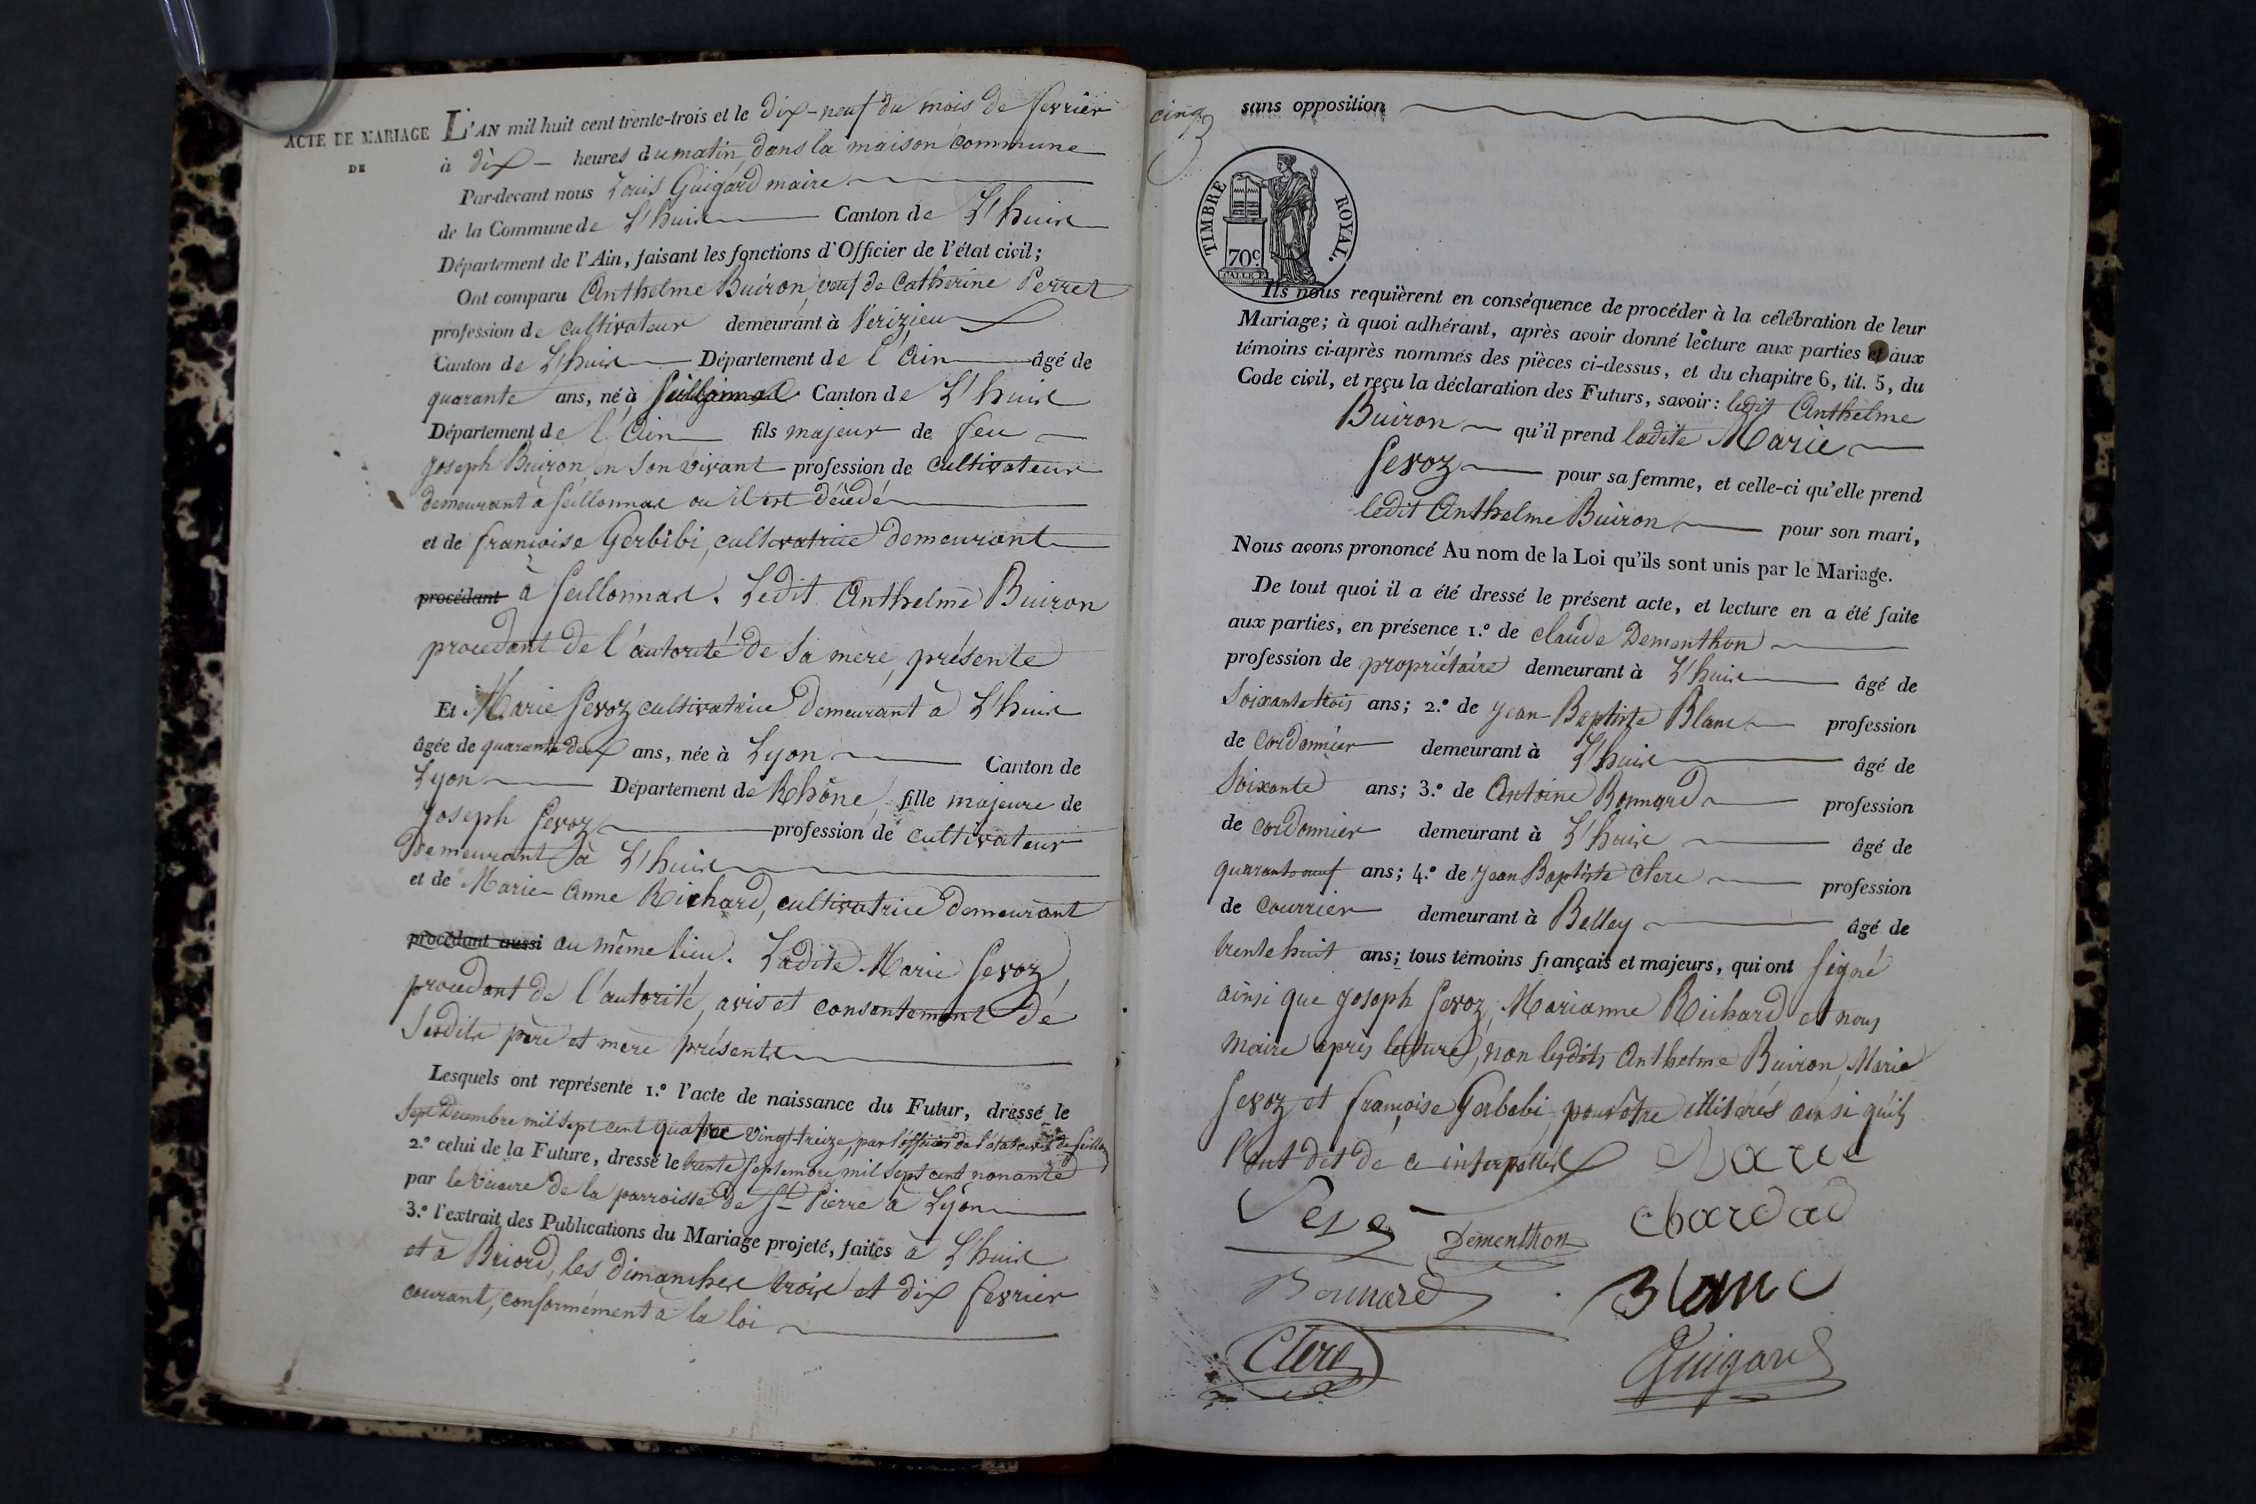 ACTE DE MARIAGE
DE
L'AN mil huit cent trente-trois et le dix-neuf du mois de fevrier
à dix heures du matin, dans la maison commune
Par-devant nous Louis Guigard maire
de la Commune de L'huis Canton de L'huis
Département de l'Ain, faisant les fonctions d'Officier de l'état civil;
Ont comparu Anthelme Buiron, veuf de Catherine Perret
profession de cultivateur demeurant à Verizieu
Canton de L'huis Département de l'Ain âgé de
quarante ans, né à Seillonnas Canton de L'huis
Département de l'Ain fils majeur de feu
Joseph Buiron en son vivant profession de cultivateur
demeurant à Seillonnas ou il est décédé
et de françoise Gerbibi, cultivatrice demeurant
procédant à Seillonnas. Ledit Anthelme Buiron
procedant de l'autorité de sa mère, présente
Et Marie Sevoz cultivatrice demeurant à L'huis
âgée de quarante deux ans, née à Lyon Canton de
Lyon Département de Rhône, fille majeure de
Joseph Sevoz profession de cultivateur
Demeurant à L'huis
et de Marie-Anne Richard, cultivatrice demeurant
procédant aussi au même lieu. Ladite Marie Sevoz,
procedant de l'autorité, avis et consentement de
sesdits père et mère présents
Lesquels ont représenté 1.º l'acte de naissance du Futur, dressé le
sept Decembre mil sept cent quatre vingt-treize, par l'officier de l'état civil de Seillon
2.º celui de la Future, dressé le trente septembre mil sept cent nonante
par le vicaire de la parroisse de St Pierre à Lyon
3.º l'extrait des Publications du Mariage projeté, faites à L'huis
et à Briord, les dimanches trois et dix fevrier
courant, conformément à la loi
cinq
sans opposition
TIMBRE ROYAL.
70c.
Ils nous requièrent en conséquence de procéder à la célébration de leur
Mariage; à quoi adhérant, après avoir donné lecture aux parties et aux
témoins ci-après nommés des pièces ci-dessus, et du chapitre 6, tit. 5, du
Code civil, et reçu la déclaration des Futurs, savoir: ledit Anthelme
Buiron qu'il prend ladite Marie
Sevoz pour sa femme, et celle-ci qu'elle prend
ledit Anthelme Buiron pour son mari,
Nous avons prononcé Au nom de la Loi qu'ils sont unis par le Mariage.
De tout quoi il a été dressé le présent acte, et lecture en a été faite
aux parties, en présence 1.º de claude Dementhon
profession de propriétaire demeurant à L'huis âgé de
soixante trois ans; 2.º de Jean-Baptiste Blanc profession
de cordonnier demeurant à L'huis âgé de
soixante ans; 3.º de Antoine Bonnard profession
de cordonnier demeurant à L'huis âgé de
quarante neuf ans; 4.º de Jean Baptiste Clerc profession
de courrier demeurant à Belley âgé de
trente huit ans; tous témoins français et majeurs, qui ont signé
ainsi que Joseph Sevoz, Marianne Richard et nous
maire après lecture, non lesdits Anthelme Buiron, Marie
Sevoz et françoise Gerbebi, pour être illitérés ainsi qu'ils
l'ont dit de ce interpellés Marie
Dementhon chardad
Bonnard Blanc
Clerc Guigard